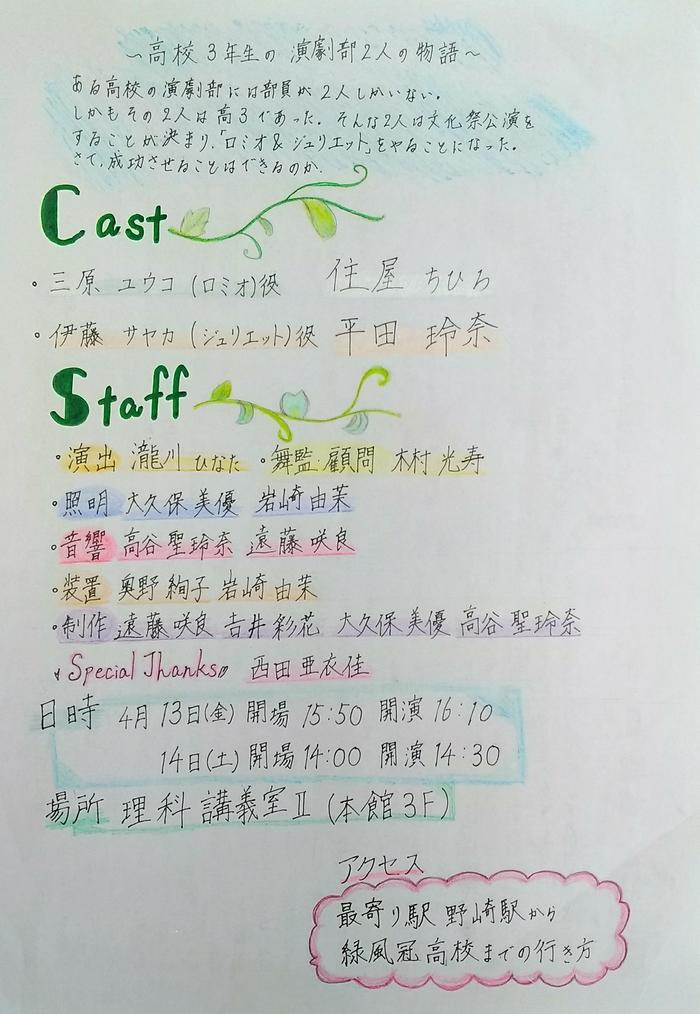 ～高校3年生の演劇部2人の物語～
ある高校の演劇部には部員が2人しかいない。
しかもその2人は高3であった。そんな2人は文化祭公演を
することが決まり、「ロミオ&ジュリエット」をやることになった。
さて、成功させることはできるのか。
Cast
・三原 ユウコ (ロミオ)役 住屋 ちひろ
・伊藤 サヤカ (ジュリエット)役 平田 玲奈
Staff
・演出 瀧川 ひなた ・舞監・顧問 木村 光寿
・照明 大久保 美優 岩崎 由茉
・音響 高谷 聖玲奈 遠藤 咲良
・装置 奥野 絢子 岩崎 由茉
・制作 遠藤 咲良 吉井 彩花 大久保 美優 高谷 聖玲奈
Special Thanks 西田 亜衣佳
日時 4月13日(金) 開場 15:50 開演 16:10
14日(土) 開場 14:00 開演 14:30
場所 理科講義室Ⅱ (本館3F)
アクセス
最寄り駅 野崎駅から
緑風冠高校までの行き方